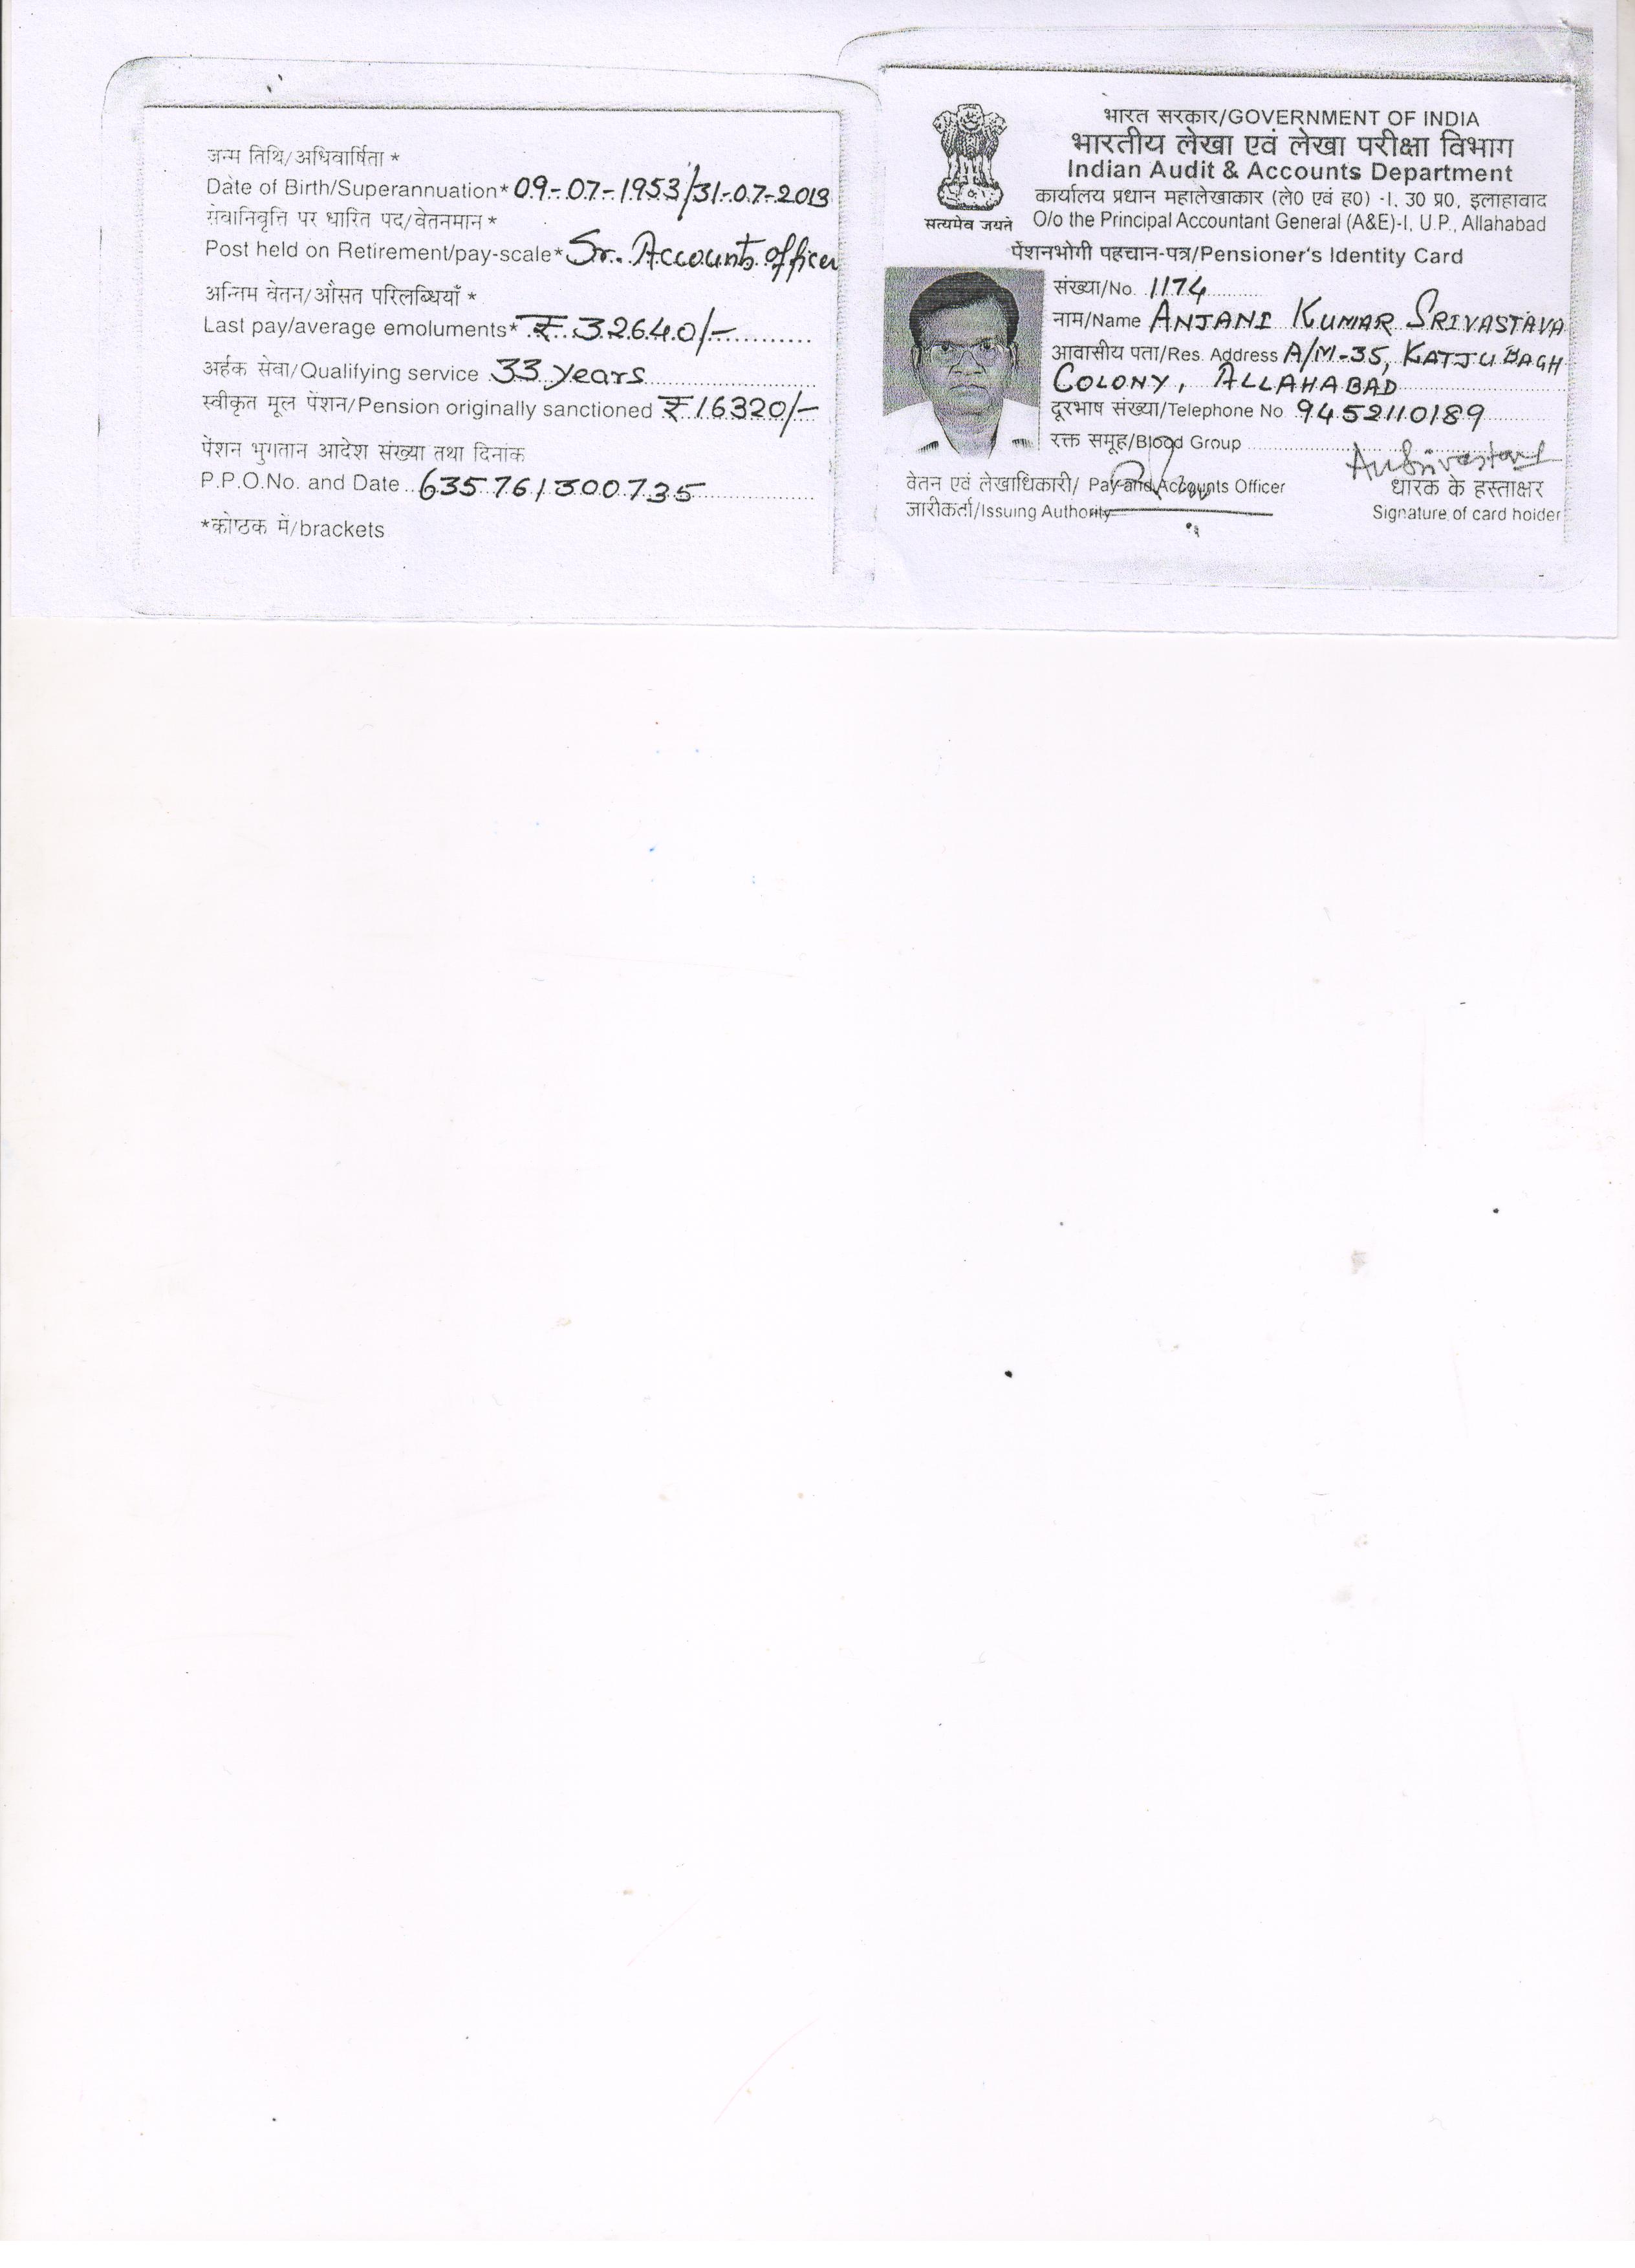 जन्म तिथि/अधिवार्षिता *
Date of Birth/Superannuation* 09-07-1953/31-07-2013
सेवानिवृत्ति पर धारित पद/वेतनमान *
Post held on Retirement/pay-scale* Sr. Accounts officer
अन्तिम वेतन/औसत परिलब्धियाँ *
Last pay/average emoluments* ₹ 32640/-
अर्हक सेवा/Qualifying service 33 years
स्वीकृत मूल पेंशन/Pension originally sanctioned ₹ 16320/-
पेंशन भुगतान आदेश संख्या तथा दिनांक
P.P.O.No. and Date 635761300735
*कोष्ठक में/brackets
भारत सरकार/GOVERNMENT OF INDIA
भारतीय लेखा एवं लेखा परीक्षा विभाग
Indian Audit & Accounts Department
कार्यालय प्रधान महालेखाकार (ले0 एवं ह0) -I, उ0 प्र0, इलाहाबाद
सत्यमेव जयते O/o the Principal Accountant General (A&E)-I, U.P., Allahabad
पेंशनभोगी पहचान-पत्र/Pensioner's Identity Card
संख्या/No. 1174
नाम/Name ANJANI KUMAR SRIVASTAVA
आवासीय पता/Res. Address A/M-35, KATJU BAGH
COLONY, ALLAHABAD
दूरभाष संख्या/Telephone No 9452110189
रक्त समूह/Blood Group
वेतन एवं लेखाधिकारी/ Pay and Accounts Officer
जारीकर्ता/Issuing Authority
धारक के हस्ताक्षर
Signature of card holder